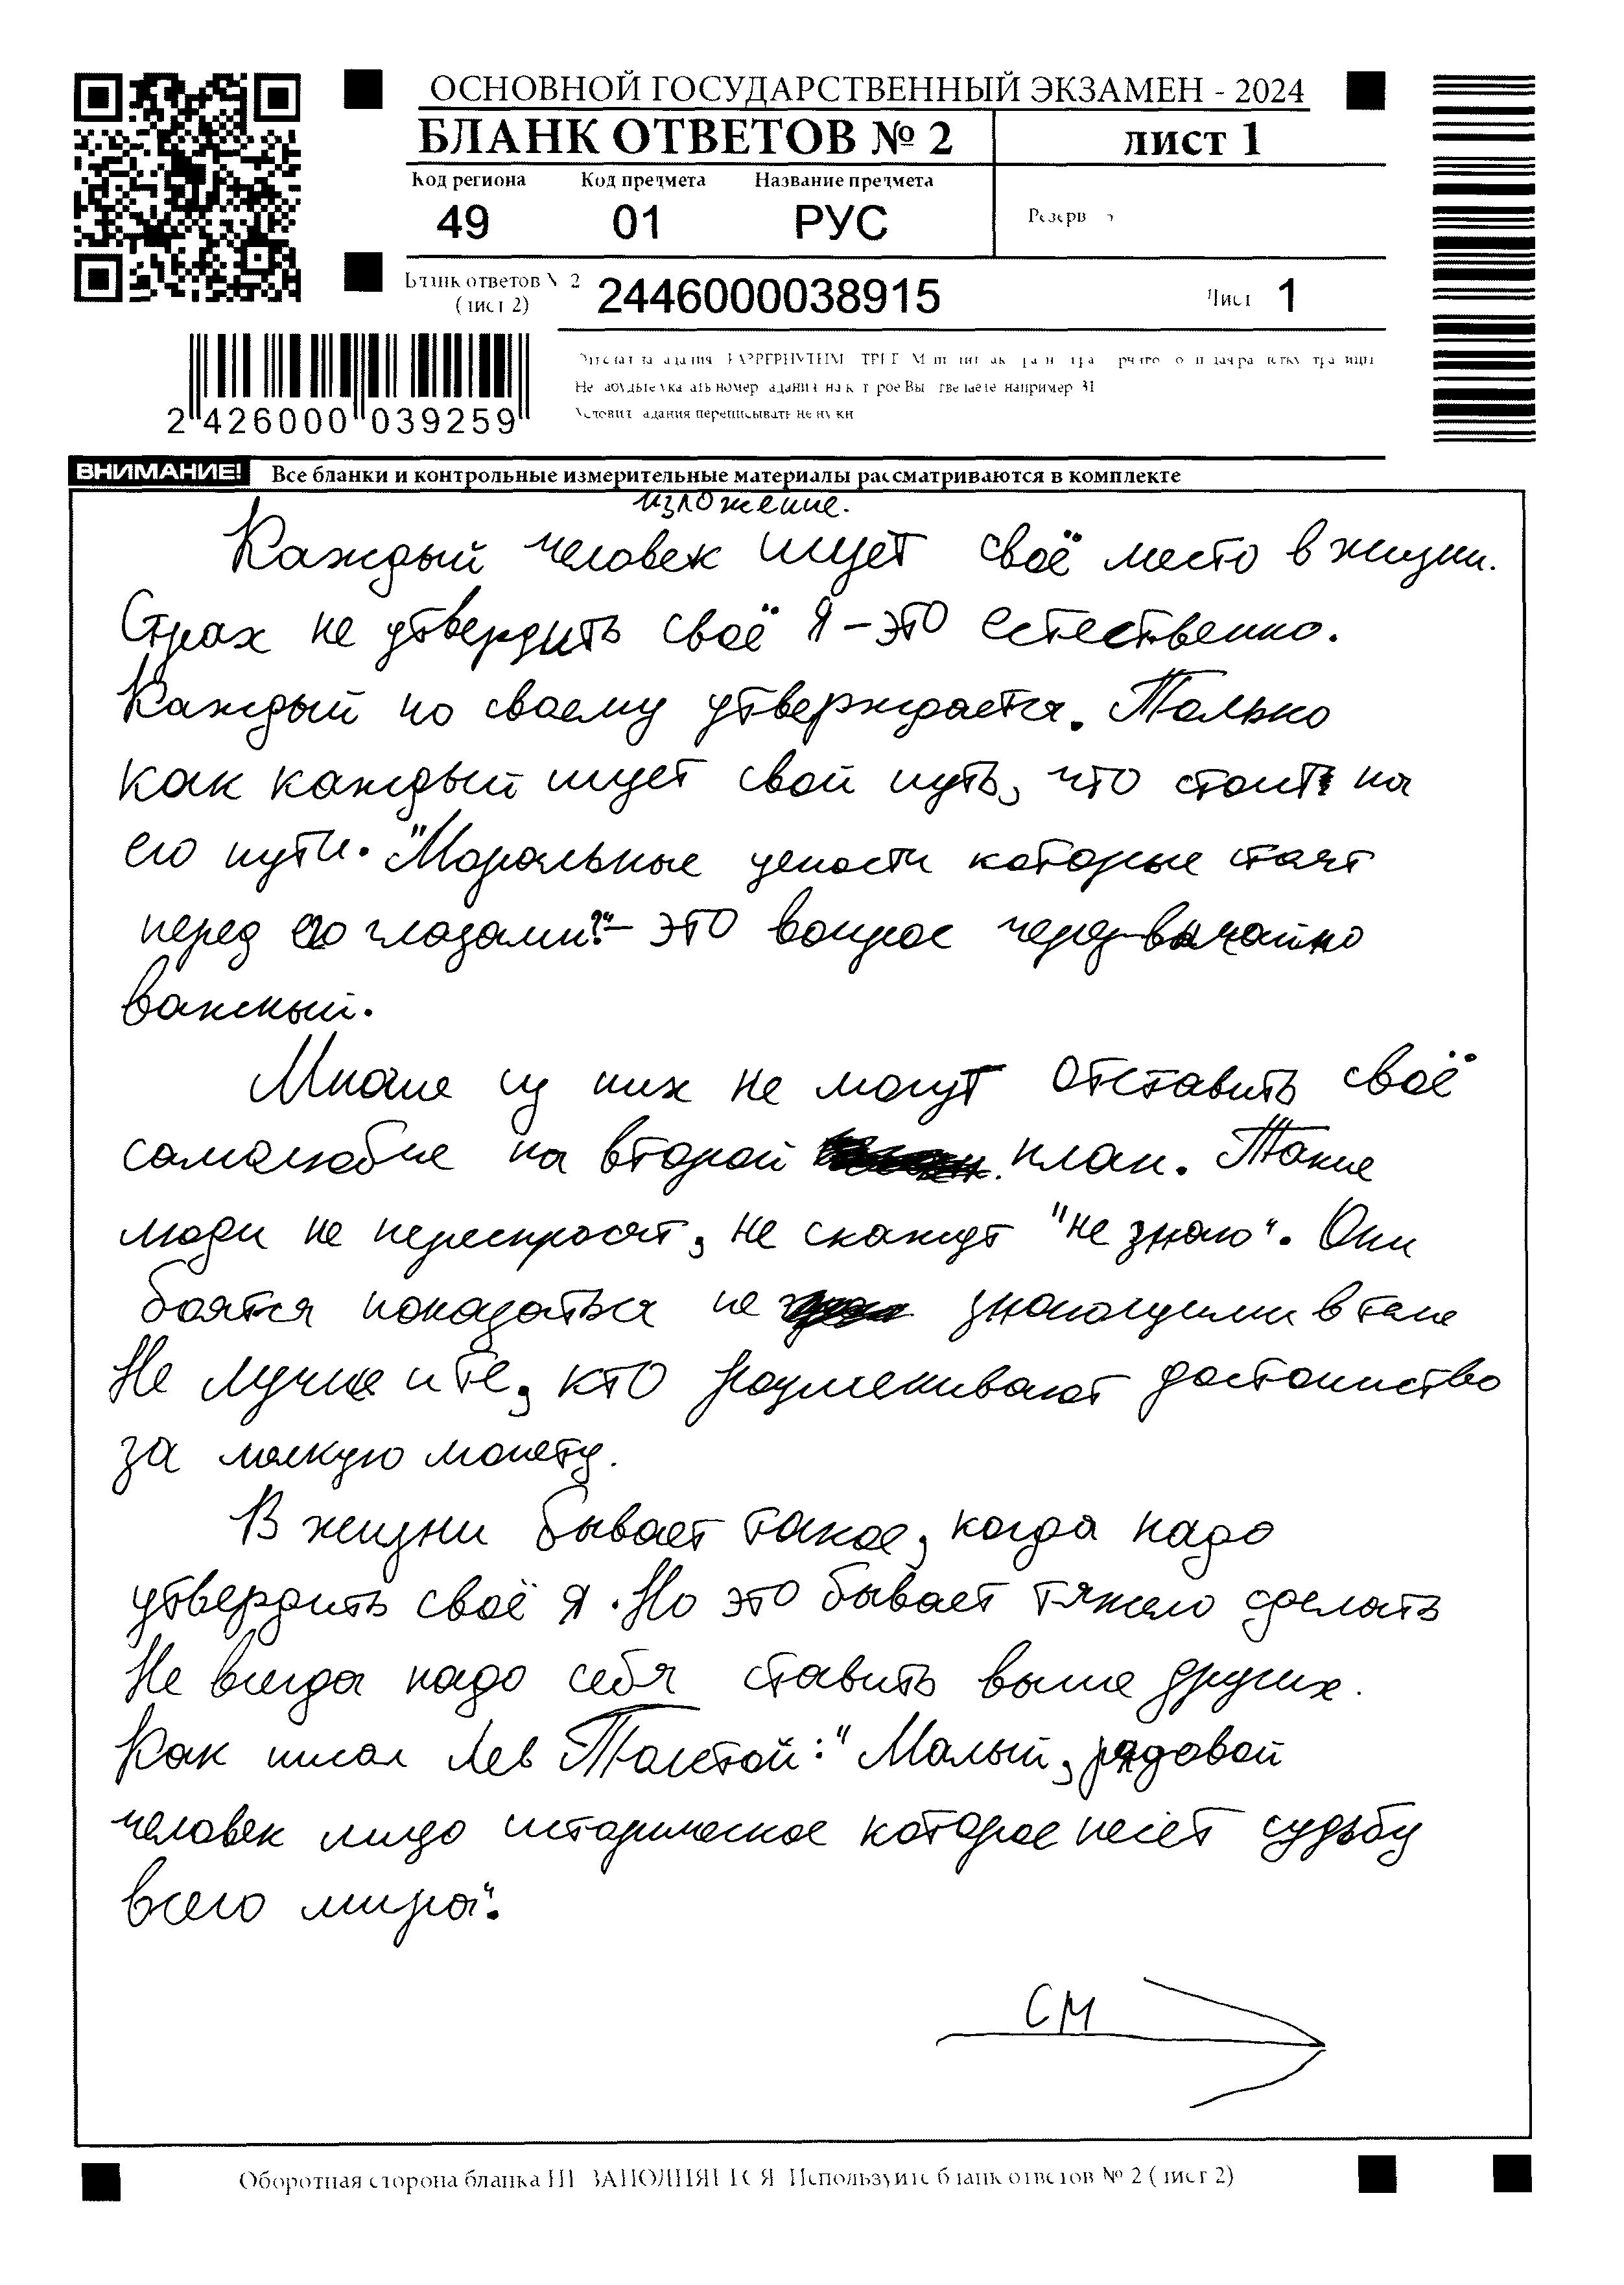 ОСНОВНОЙ ГОСУДАРСТВЕННЫЙ ЭКЗАМЕН - 2024
БЛАНК ОТВЕТОВ № 2 лист 1
Код региона Код предмета Название предмета
49 01 РУС Резерв
Бланк ответов № 2
(лист 2) 2446000038915 Лист 1
2 426000 039259
Условия задания переписывать не нужно
ВНИМАНИЕ! Все бланки и контрольные измерительные материалы рассматриваются в комплекте
изложение.
Каждый человек ищет своё место в жизни.
Страх не утвердить своё Я – это естественно.
Каждый по своему утверждается. Только
как каждый ищет свой путь, что стоит на
его пути. "Моральные цености которые стоят
перед его глазами?"– это вопрос черед-вычайно
важный.
Многие из них не могут отставить своё
самолюбие на второй план. Такие
люди не переспросят, не скажут "не знаю". Они
боятся показаться не знающими в теме
Не лучше и те, кто разменивают достоинство
за мелкую монету.
В жизни бывает такое, когда надо
утвердить своё я. Но это бывает тяжело сделать
Не всегда надо себя ставить выше других.
Как писал Лев Толстой: "Малый, рядовой
человек лицо историческое которое несёт судьбу
всего мира".
СМ
Оборотная сторона бланка НЕ ЗАПОЛНЯЕТСЯ Используйте бланк ответов № 2 (лист 2)